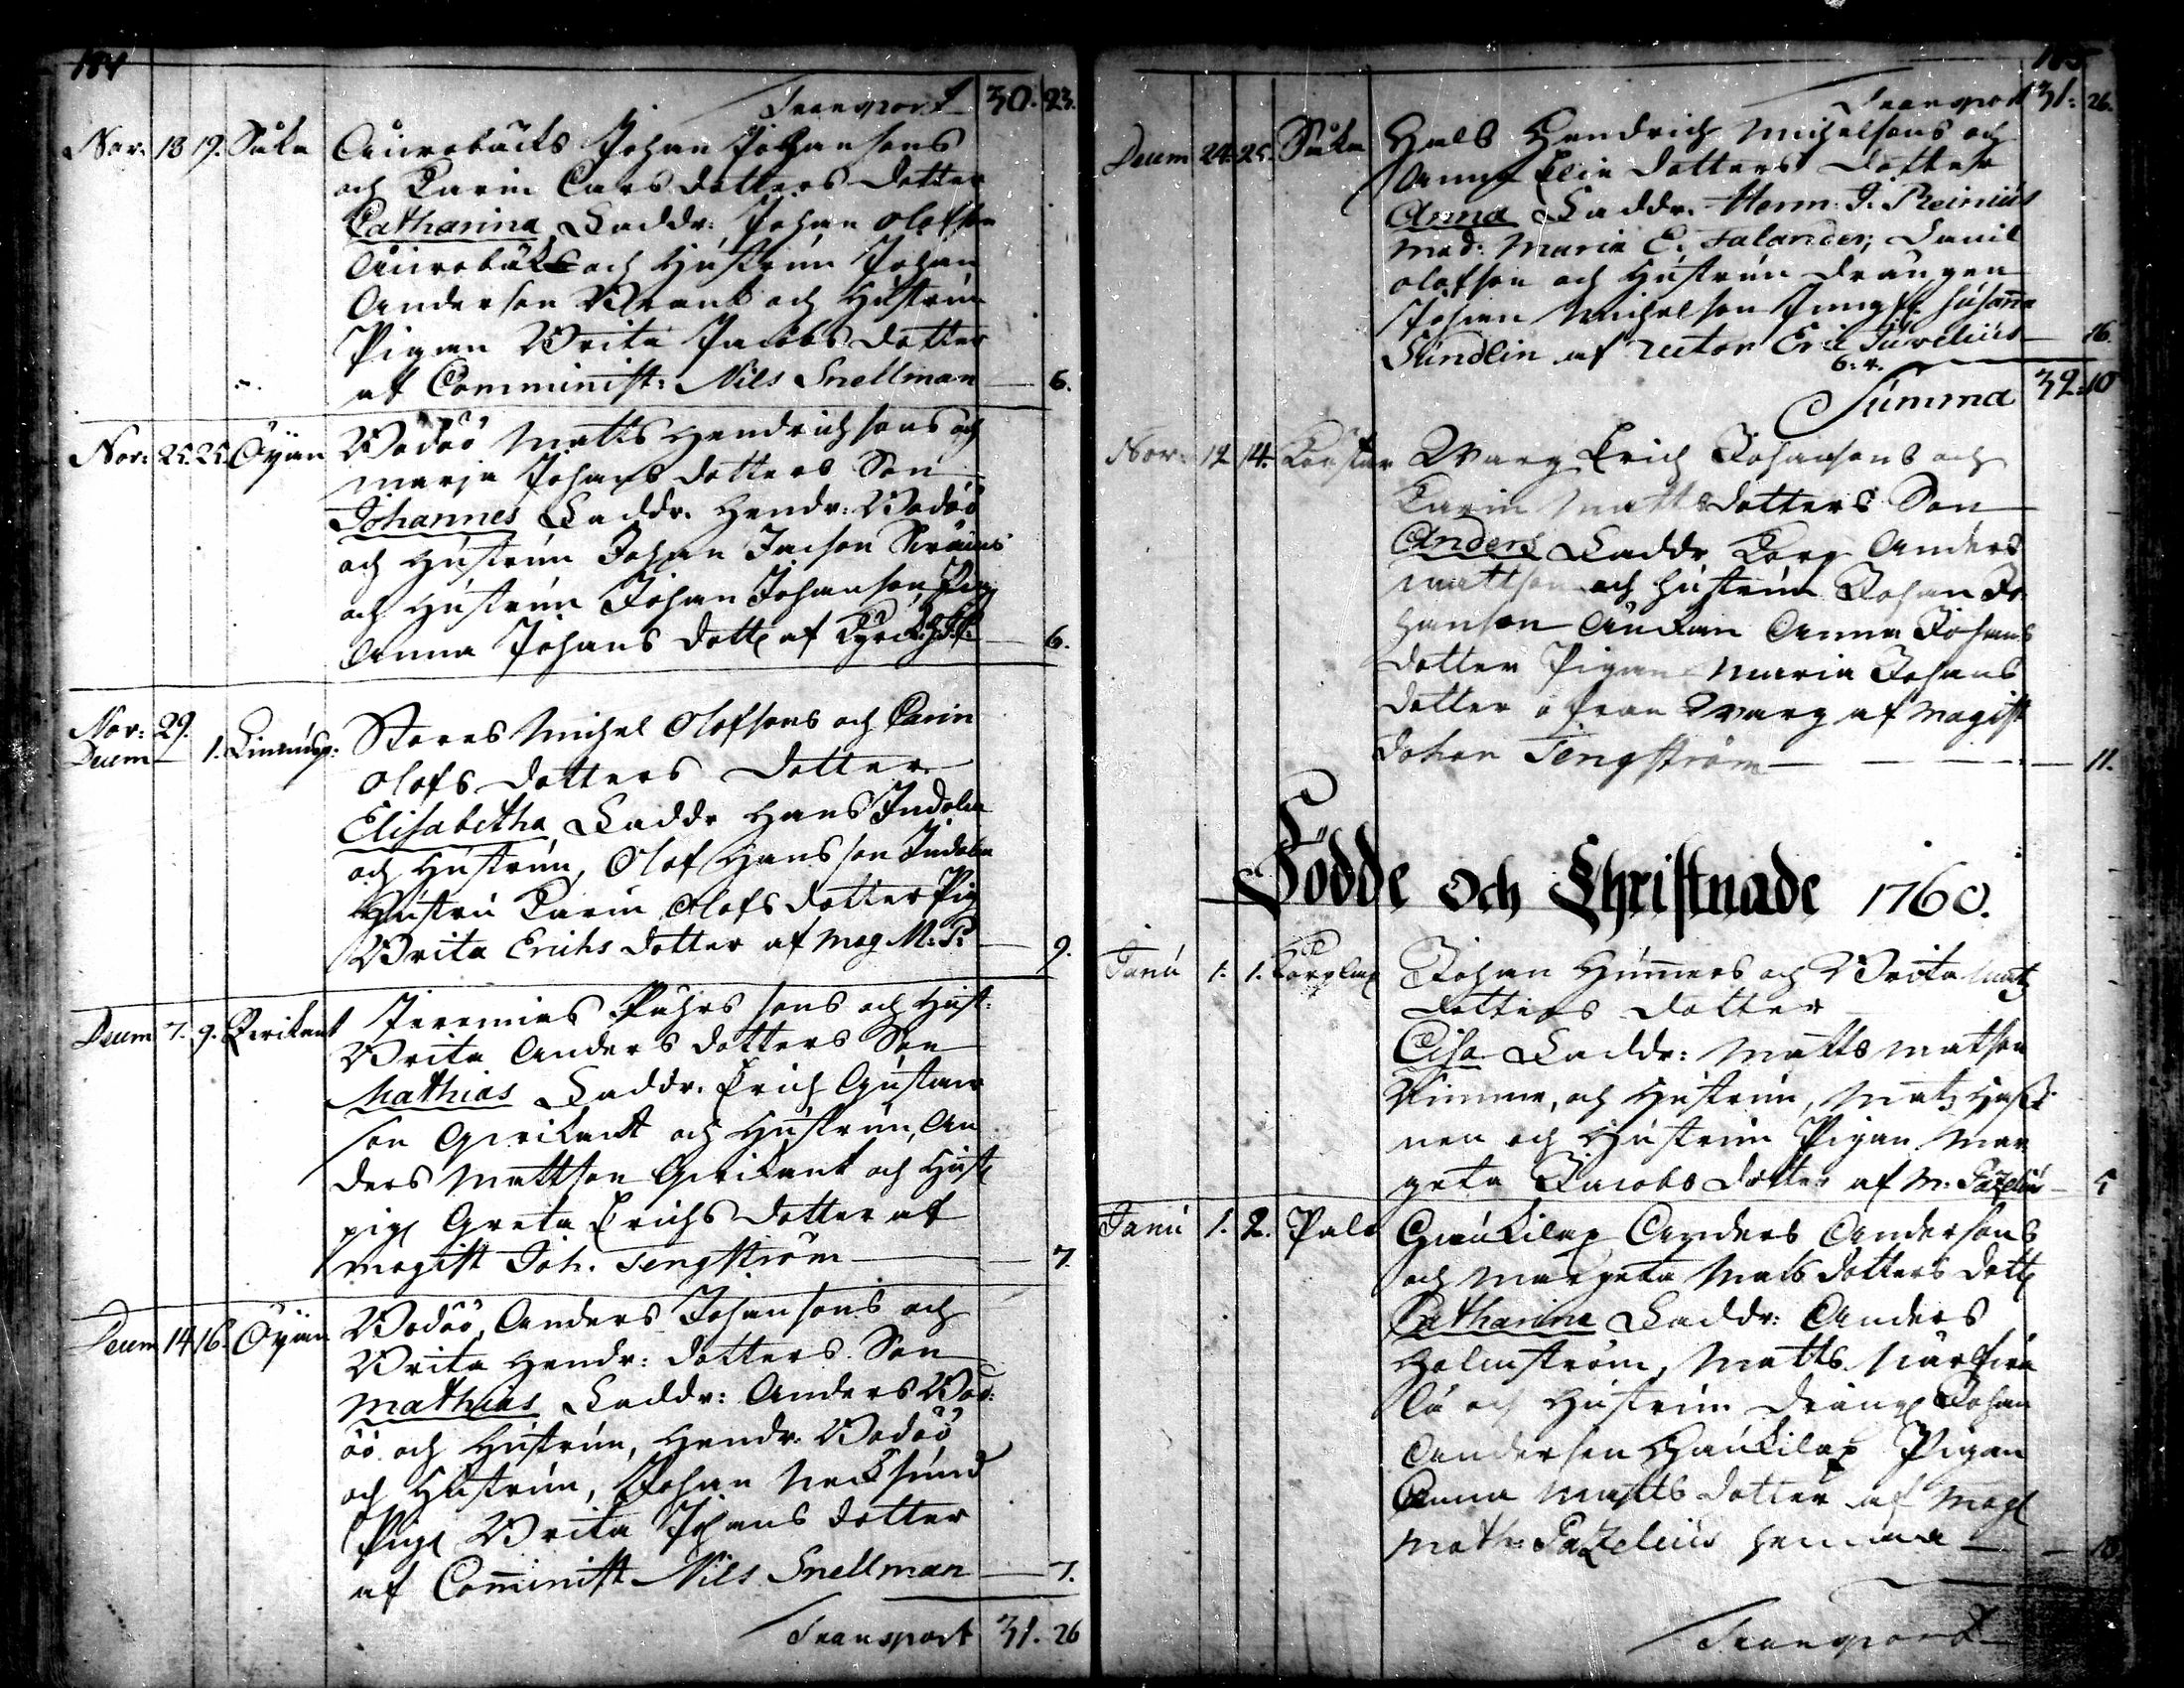 184
Transport 30. 23.
Nov: 18 19. Såka Johan Johansons
och Karin Lars dotters dotter
Catharina Faddr: Johan Olofson
och Hustrun Johan
Anderson och Hustrun
Pigan Brita Jacobs dotter
af Comminist: Nils Snellman — 6.
Nov: 25. 25. Öijan Bodöö Matts Hendrichsons och
Marja Johans dotters Son
Johannes Faddr. Hendr: Bodöö
och Hustrun Johan Jacson
och Hustrun Johan Johanson, Pig
Anna Johans dott af — 6.
Nov: 29.
Decem — 1. Stores Michel Olofsons och Carin
Olofs dotters dotter
Elisabetha Faddr Hans Indola
och Hustrun, Olof Hansson Indola
Hustru Karin Olofs dotter Pig
Brita Erichs dotter af Mag M: P: — 9.
Decem 7. 9. Jeremias sons och Hust:
Brita Anders dotters Son
Mathias Faddr. Erich Gustav
son och Hustrun, An
ders Mattson och Hust
pig Greta Erichs dotter af
Magist Joh. Tengström — 7.
Decem 14 16. Öijan Bodöö Anders Johansons och
Brita Hendr: dotters Son
Mathias Faddr: Anders Bod:
öö och Hustrun, Hendr. Bodöö
och Hustrun, Johan
Pig Brita Johans dotter
af Cominist Nils Snellman — 7.
Transport 31. 26
185
Transport 31: 26.
Decem 24. 25. Såka Hendrich Michelsons och
Anna Elin dotters dotter
Anna Faddr. Herr. J. Reinius
Mad: Maria E. Falander, Daniel
Olofson och Hustrun drängen
Johan Michelson Jungf: Susanna
Sundlin af Rector Eric Juvelius — 16.
6: 4.
Summa 32: 10
Nov: 12 14. Warg Erich Johansons och
Karin Matts dotters Son
Anders Faddr Korp Anders
Mattson och Hustrun Johan Jo
hanson Anna Johans
dotter Pigan Maria Johans
dotter från Warg af Magist
Johan Tengström — 11.
Födde och Christnade 1760.
Janu 1. 1. Korplax Johan och Brita Matz
dotters dotter
Lisa Faddr: Matts Matson
och Hustrun, Matz
nen och Hustrun Pigan Mar
greta Jacobs dotter af M. Pazelius — 5
Janu 1. 2. Palo Anders Andersons
och Margreta Mats dotters dott
Catharina Faddr: Anders
Holmström, Matts
la och Hustrun dräng Johan
Anderson Pigan
Anna Matts dotter af Mag
Math: Pazelius hemma — 18.
Transport